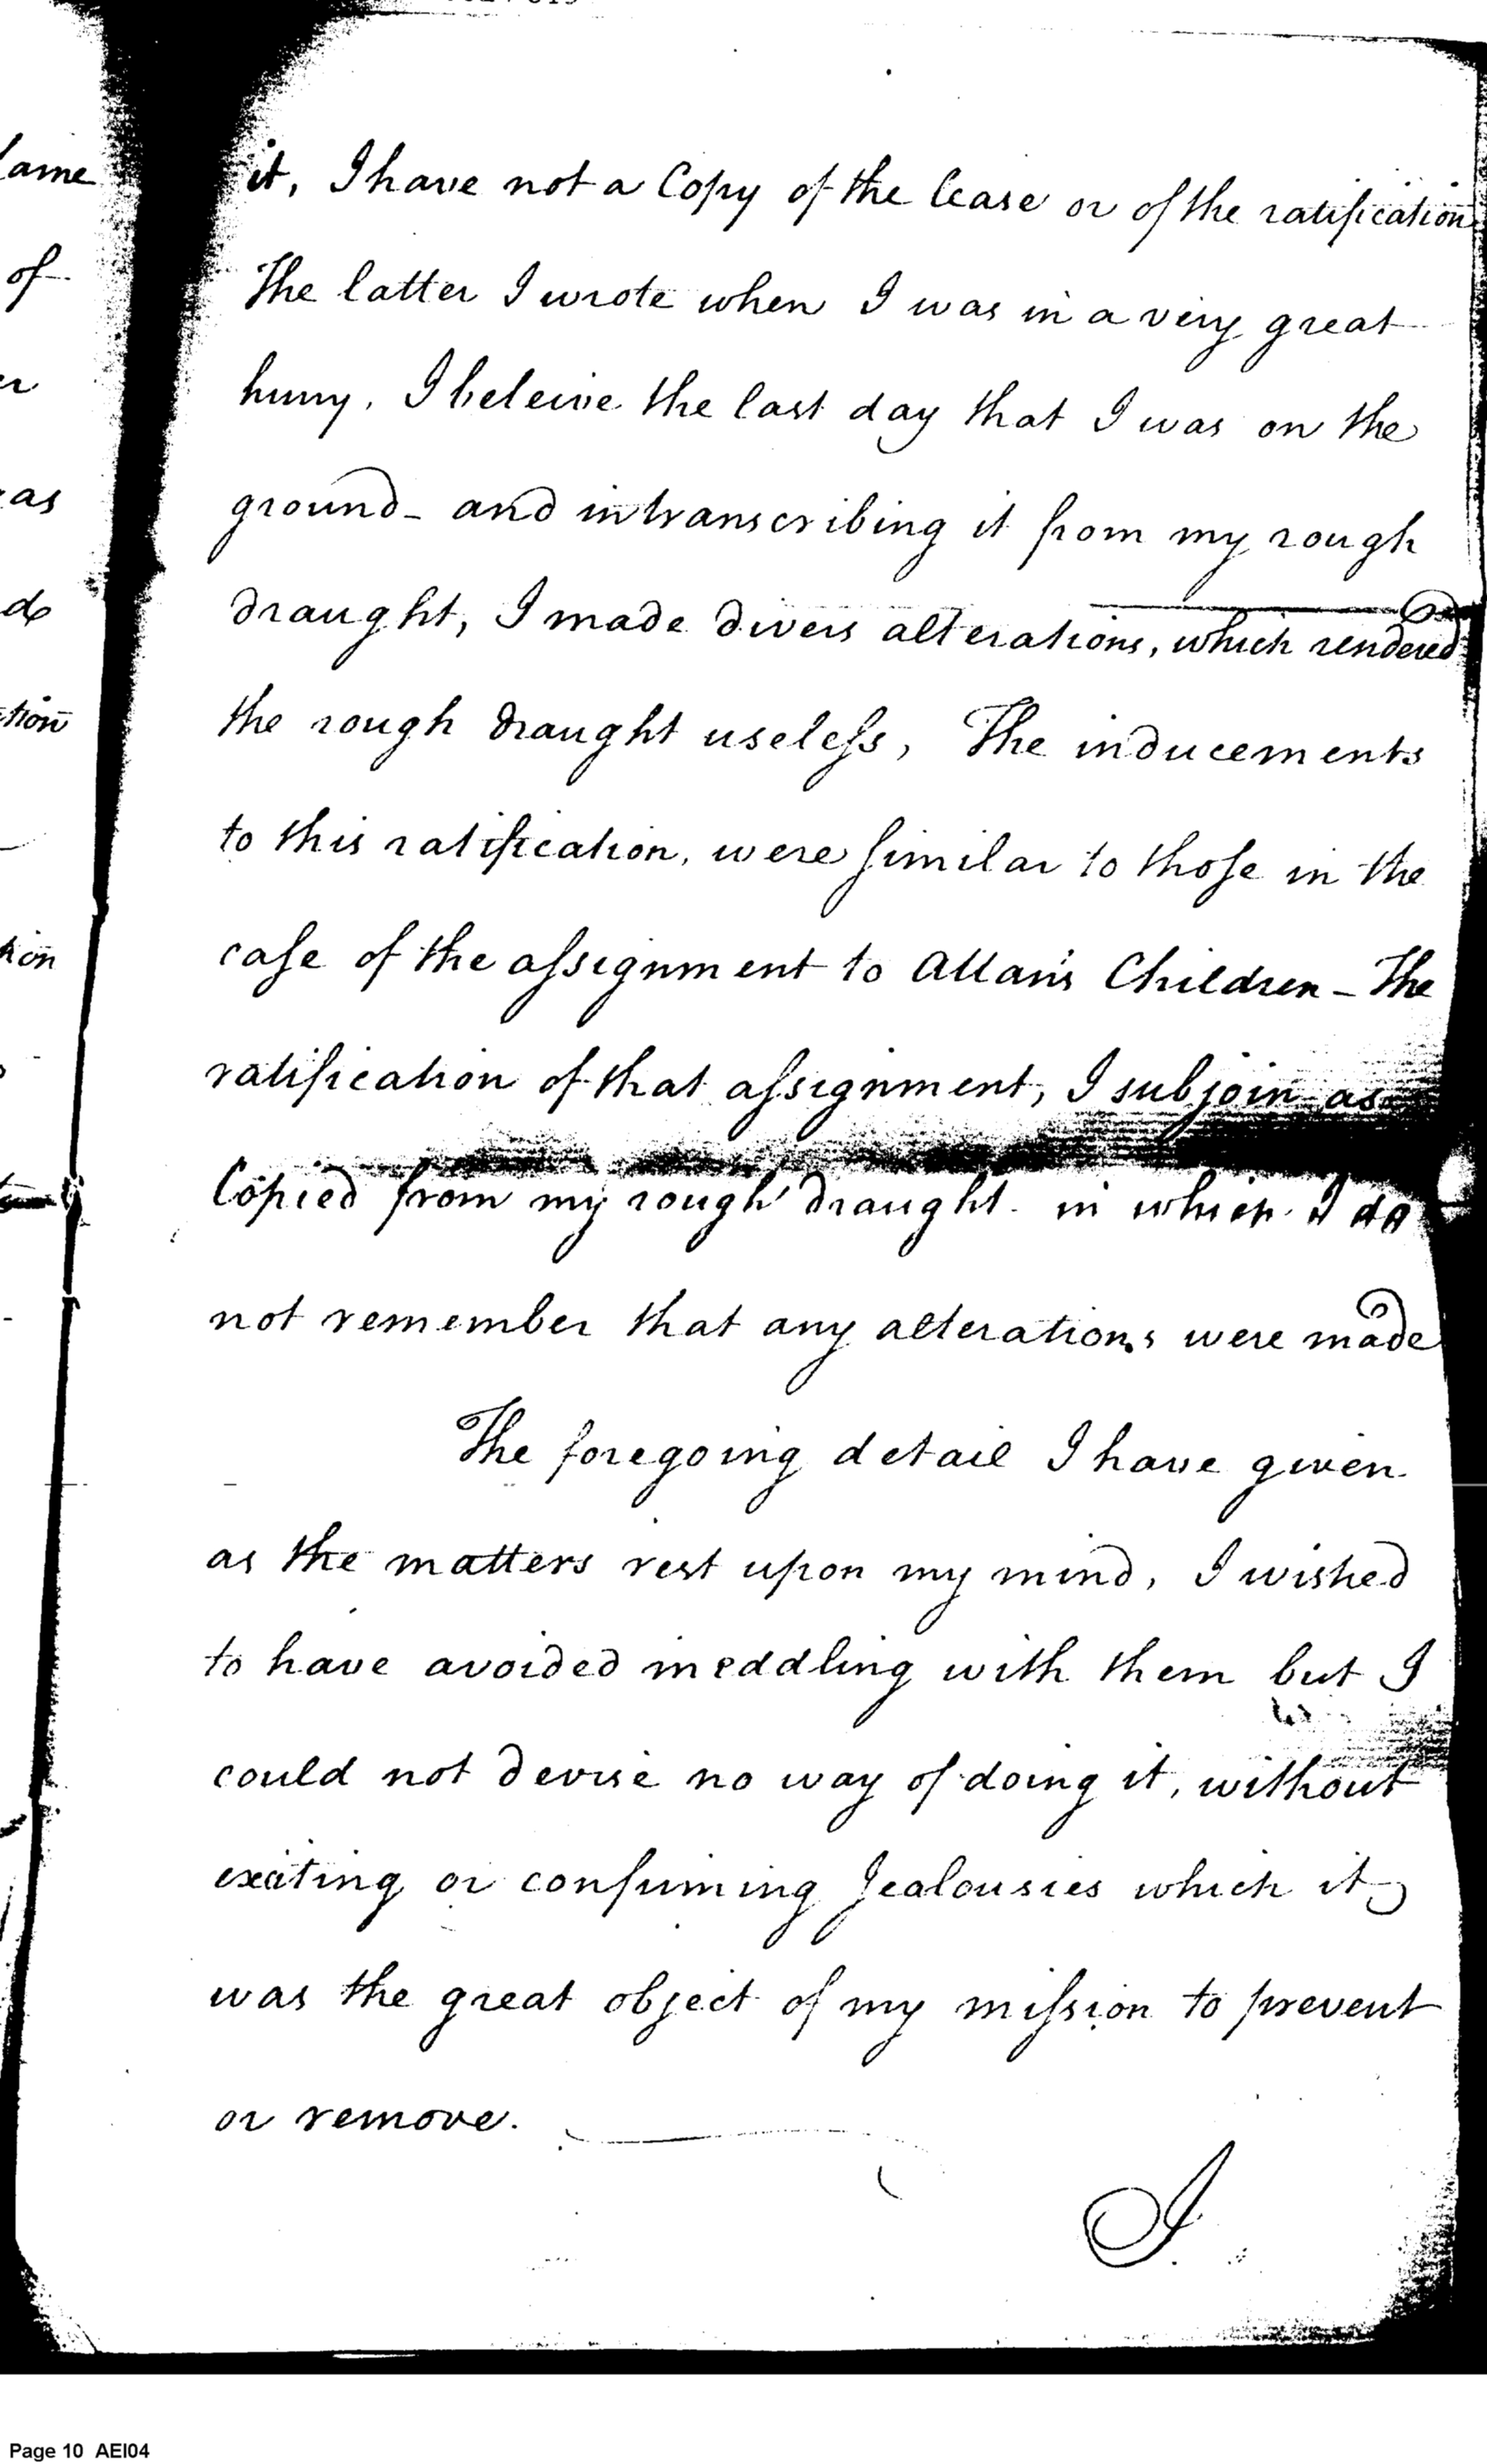 it, I have not a Copy of the lease or of the ratification
The latter I wrote when I was in a very great
hurry, I beleive the last day that I was on the
ground - and in transcribing it from my rough
draught, I made divers alterations, which rendered
the rough draught useleſs, The inducements
to this ratification, were ſimilar to thoſe in the
caſe of the aſsignment to Allan's Children - The
ratification of that aſsignment, I subjoin as
Copied from my rough draught. in which I do
not remember that any alterations were made
The foregoing detail I have given
as the matters rest upon my mind, I wished
to have avoided meddling with them but I
could not devise no way of doing it, without
exciting or confirming Jealousies which it
was the great object of my miſsion to prevent
or remove.
I
lame
of
er
as
do
tion
tion
Page 10 AEI04